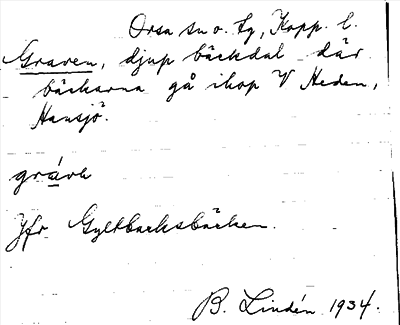 Orsa sn o. tg, Kopp. l.
Graven, djup bäckdal där
bäckarna gå ihop V Heden,
Hansjö.
Jfr Gyltbacksbäcken.
B. Lindén 1934.